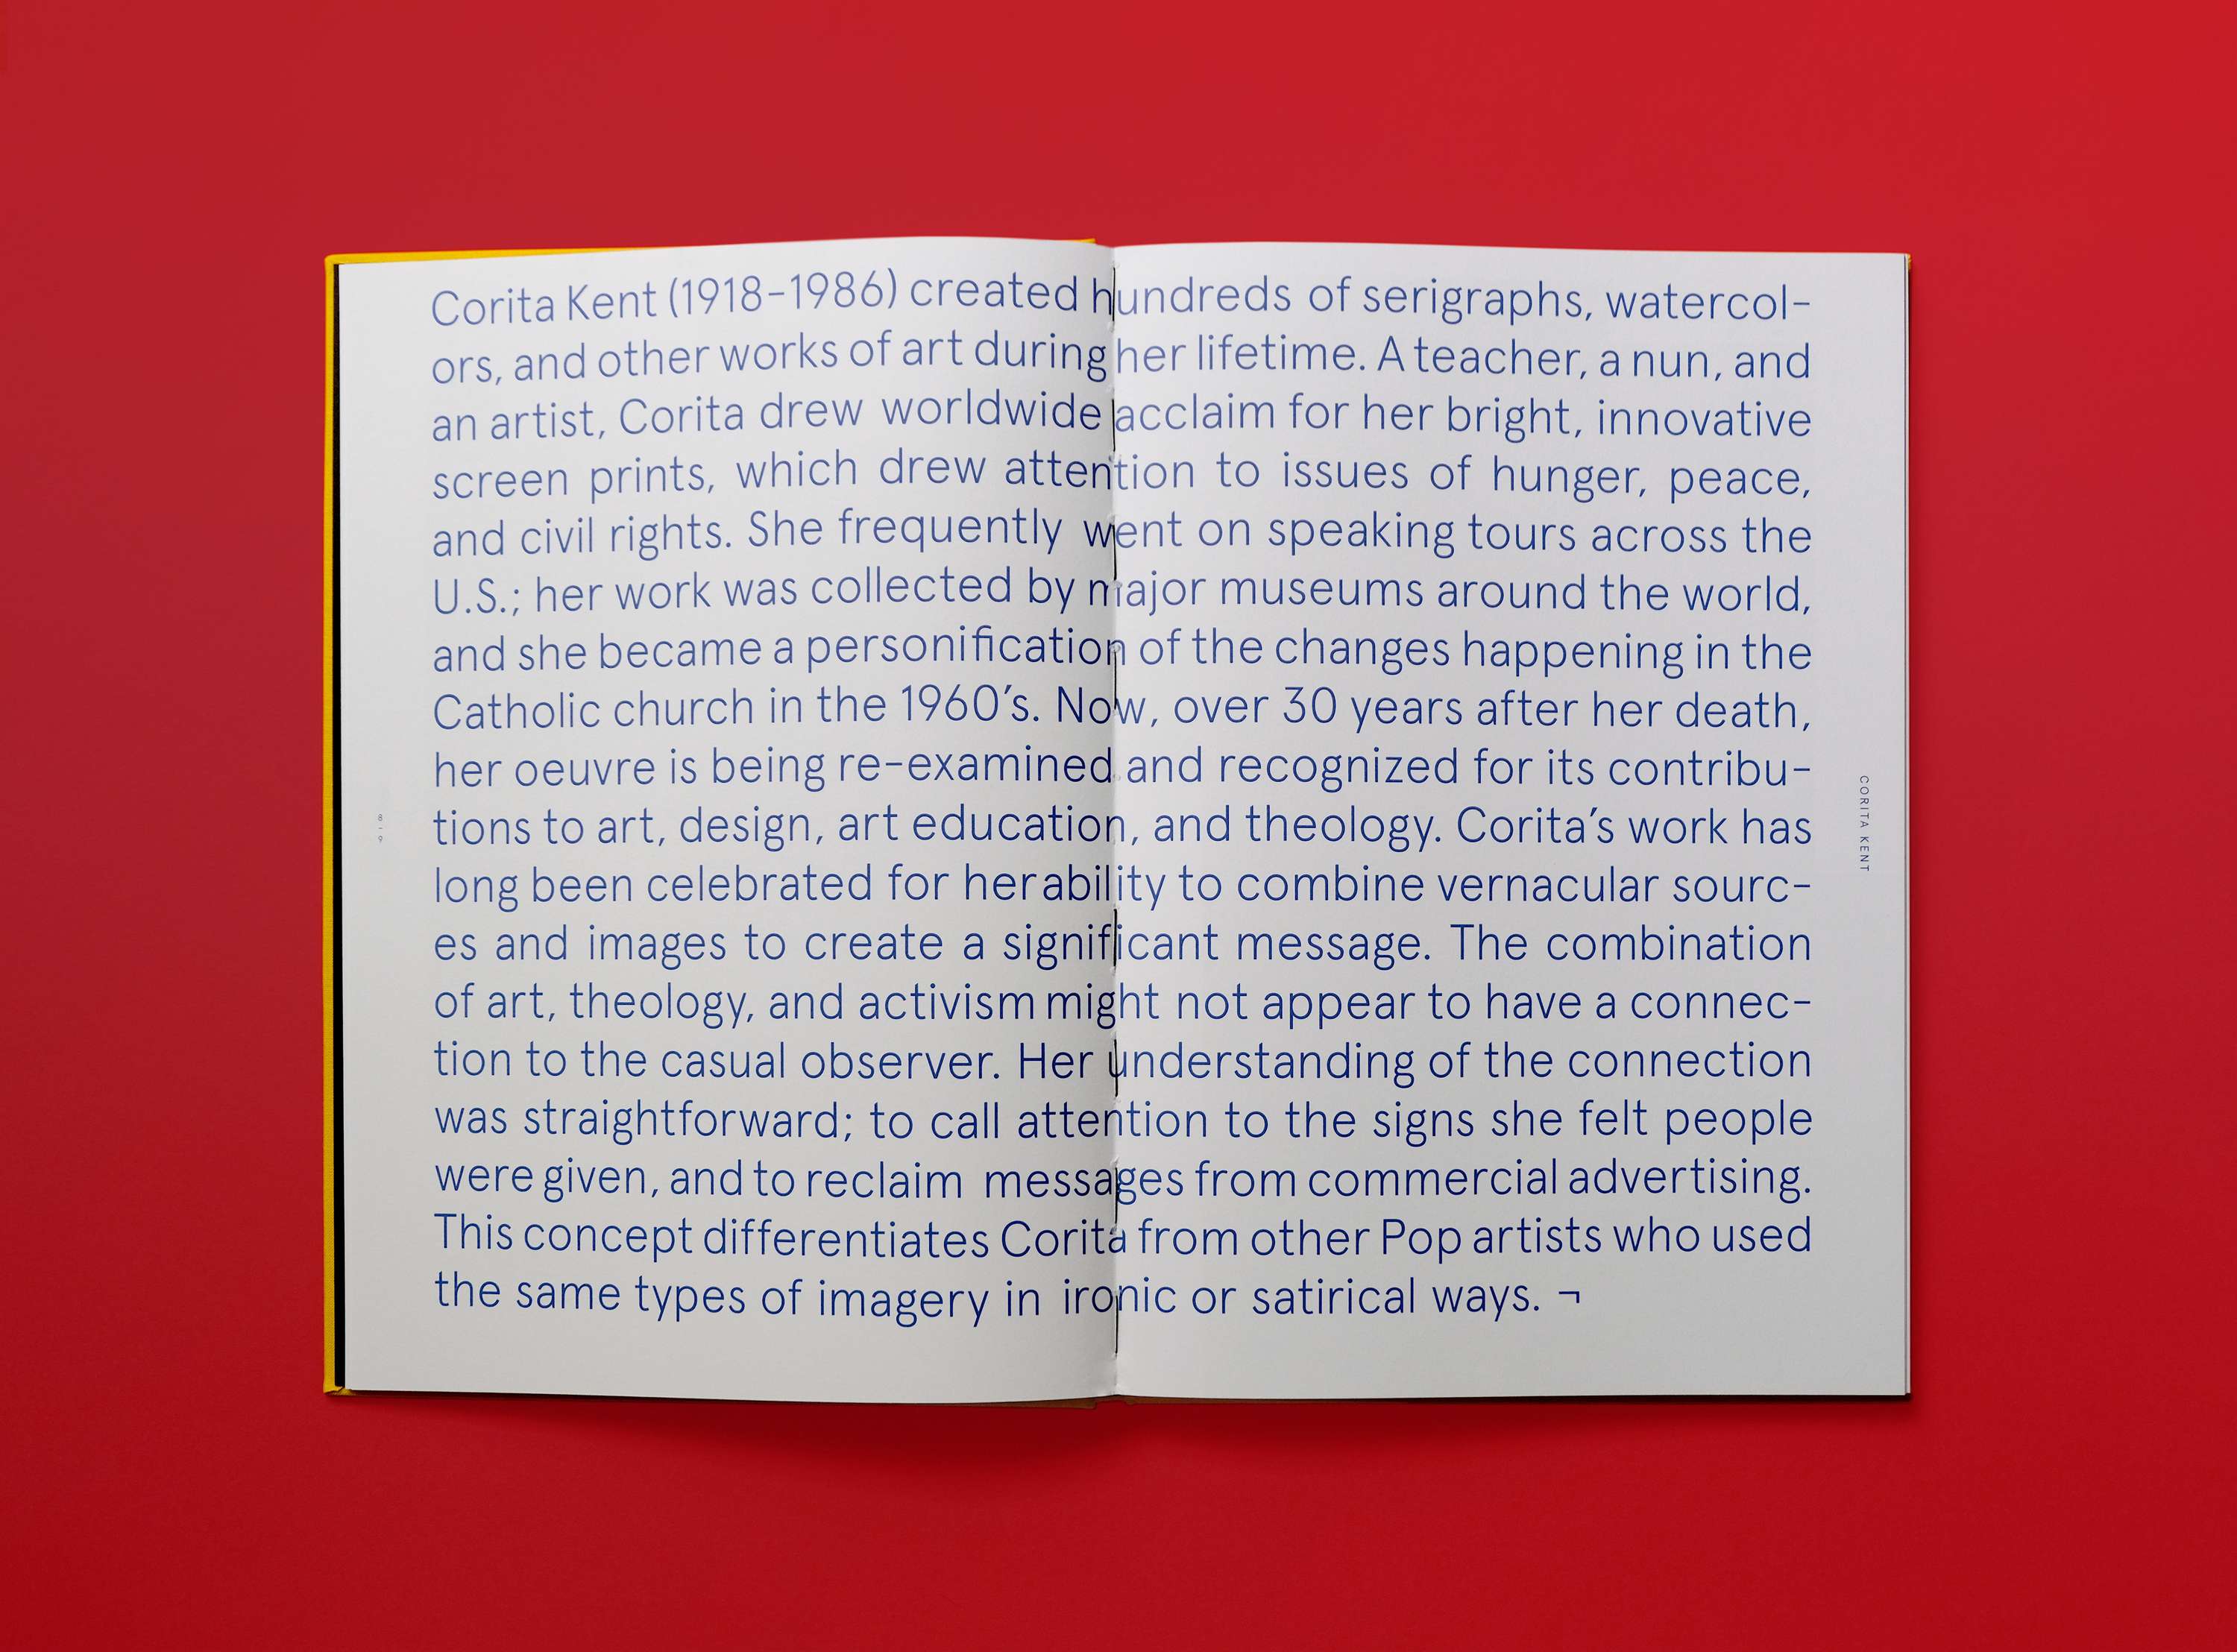 Corita Kent (1918–1986) created hundreds of serigraphs, watercol-
ors, and other works of art during her lifetime. A teacher, a nun, and
an artist, Corita drew worldwide acclaim for her bright, innovative
screen prints, which drew attention to issues of hunger, peace,
and civil rights. She frequently went on speaking tours across the
U.S.; her work was collected by major museums around the world,
and she became a personification of the changes happening in the
Catholic church in the 1960’s. Now, over 30 years after her death,
her oeuvre is being re-examined and recognized for its contribu-
tions to art, design, art education, and theology. Corita’s work has
long been celebrated for her ability to combine vernacular sourc-
es and images to create a significant message. The combination
of art, theology, and activism might not appear to have a connec-
tion to the casual observer. Her understanding of the connection
was straightforward; to call attention to the signs she felt people
were given, and to reclaim messages from commercial advertising.
This concept differentiates Corita from other Pop artists who used
the same types of imagery in ironic or satirical ways. ¬
8–9
CORITA KENT